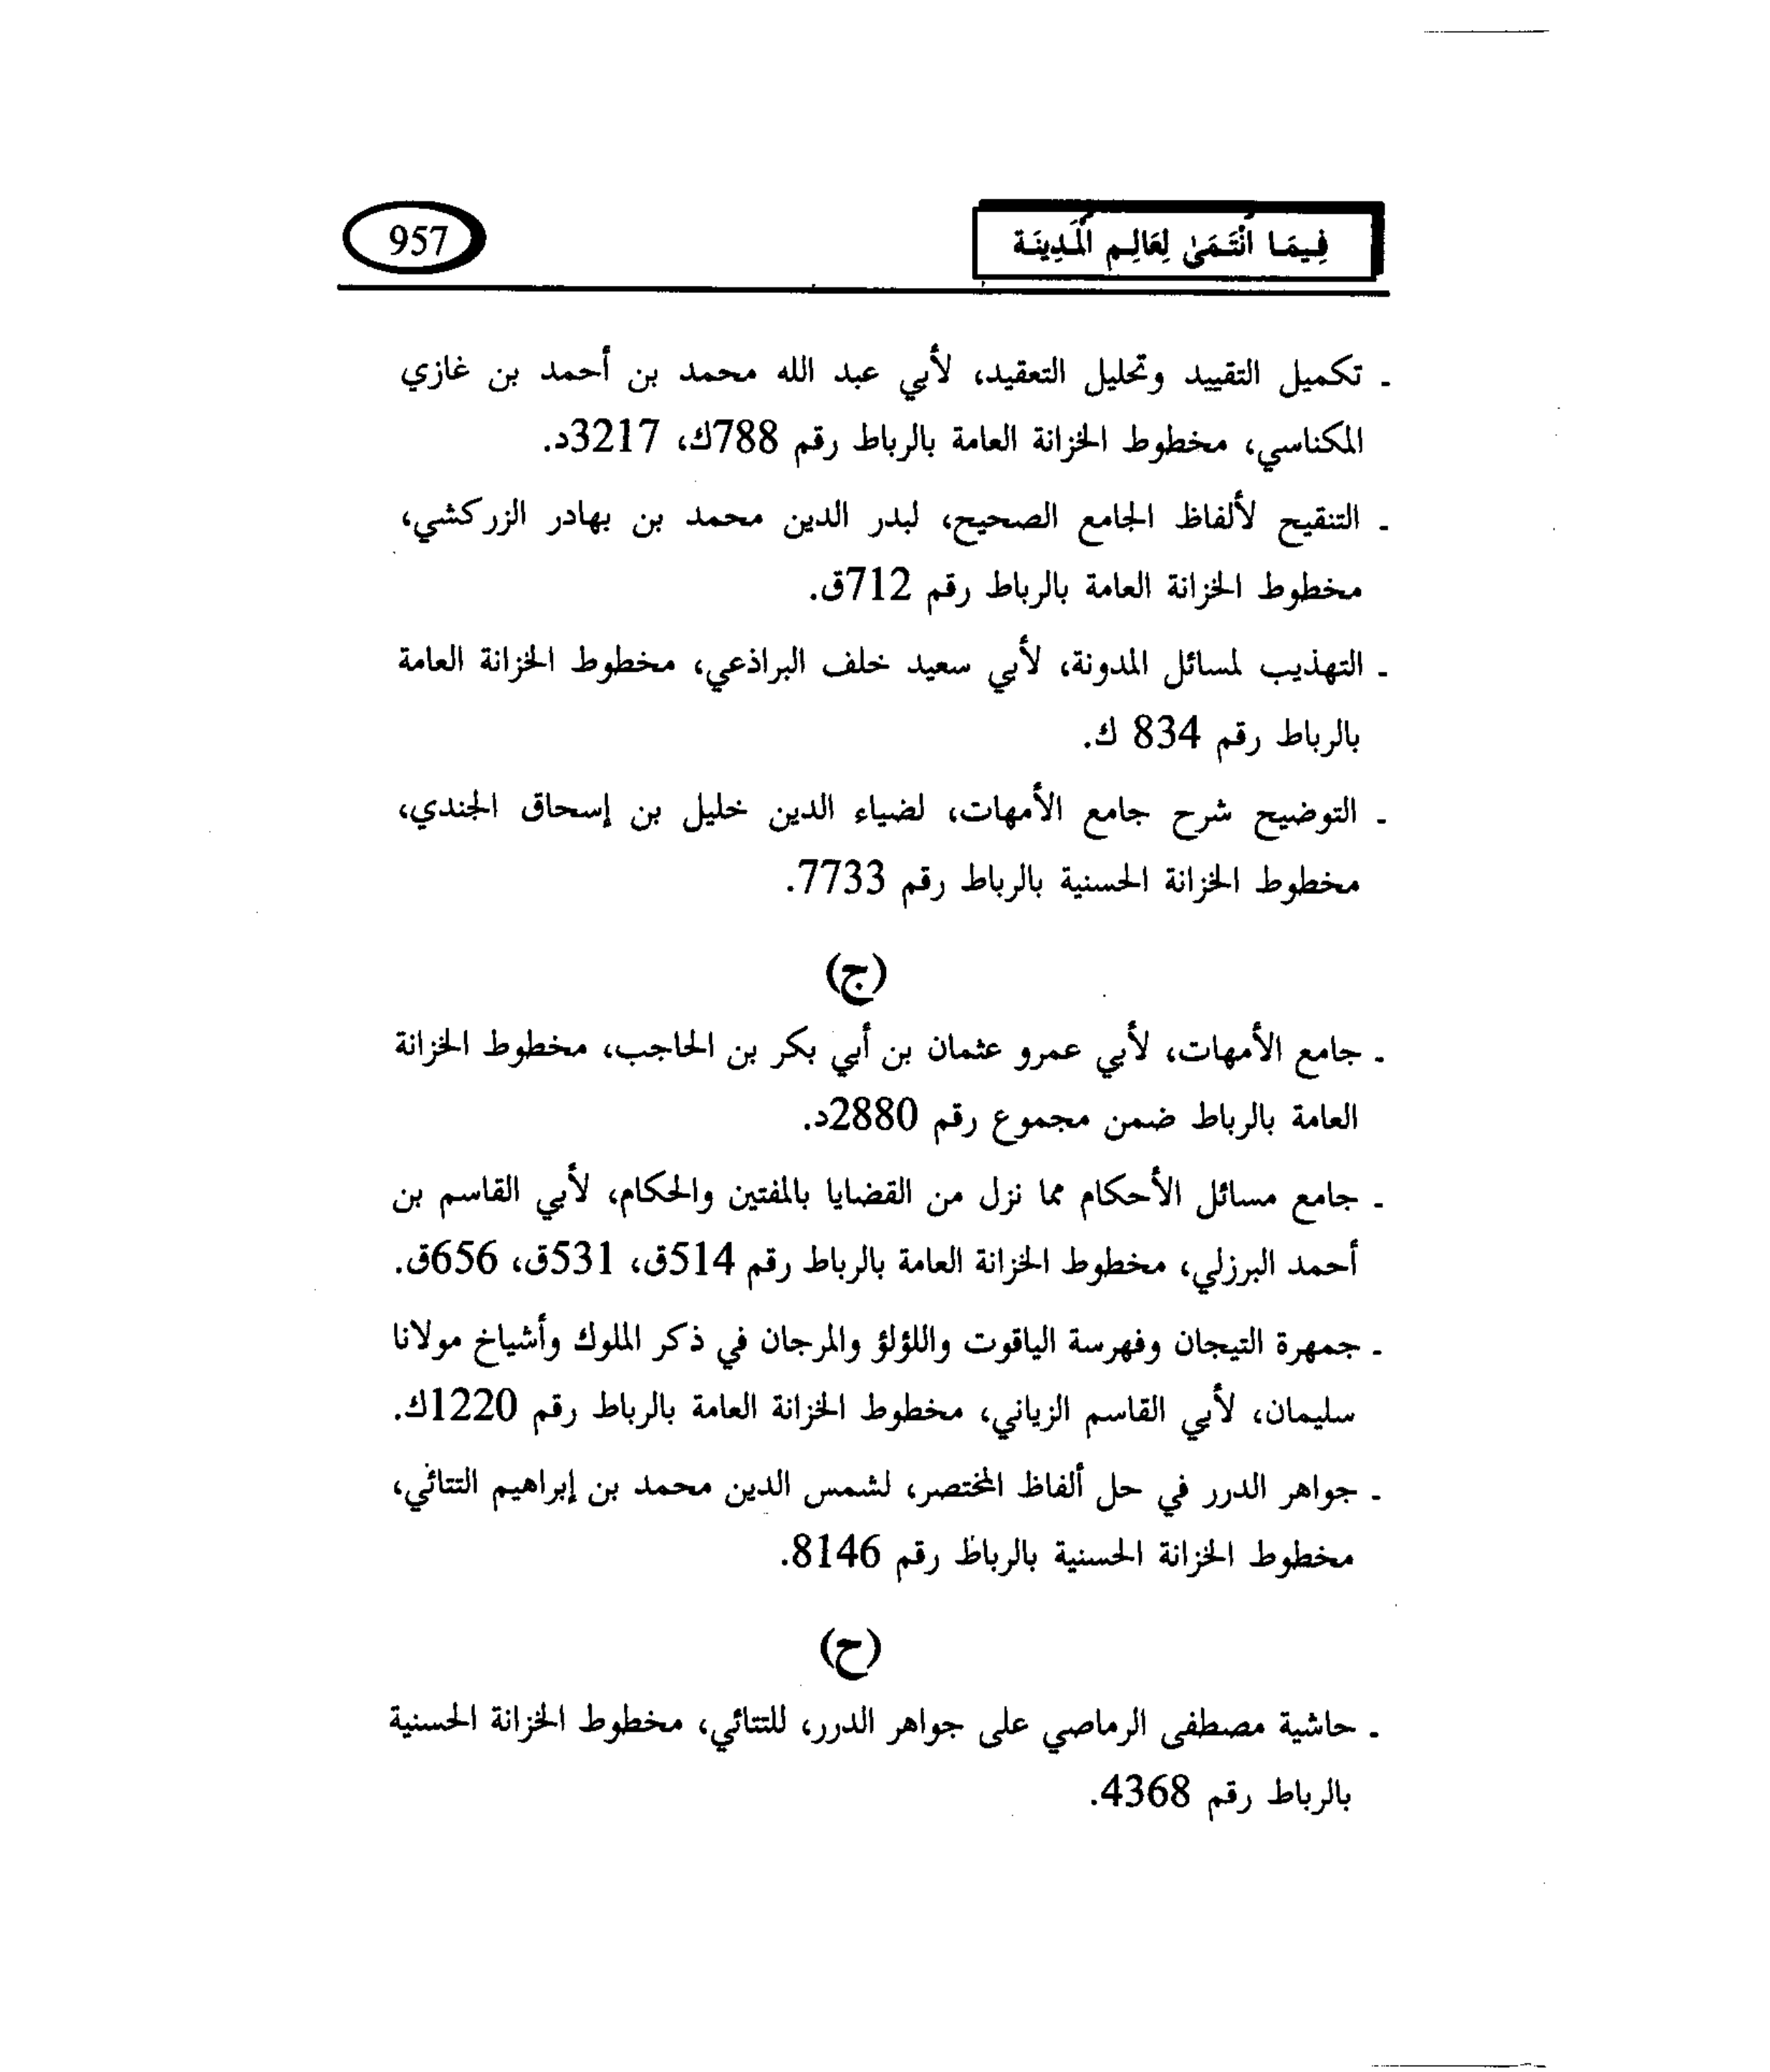 فِيمَا ٱنْتَمَىٰ لِعَالِمِ ٱلْمَدِينَة
957
- تكميل التقييد وتحليل التعقيد، لأبي عبد الله محمد بن أحمد بن غازي
المكناسي، مخطوط الخزانة العامة بالرباط رقم 788ك، 3217د.
- التنقيح لألفاظ الجامع الصحيح، لبدر الدين محمد بن بهادر الزركشي،
مخطوط الخزانة العامة بالرباط رقم 712ق.
- التهذيب لمسائل المدونة، لأبي سعيد خلف البراذعي، مخطوط الخزانة العامة
بالرباط رقم 834 ك.
- التوضيح شرح جامع الأمهات، لضياء الدين خليل بن إسحاق الجندي،
مخطوط الخزانة الحسنية بالرباط رقم 7733.
(ج)
- جامع الأمهات، لأبي عمرو عثمان بن أبي بكر بن الحاجب، مخطوط الخزانة
العامة بالرباط ضمن مجموع رقم 2880د.
- جامع مسائل الأحكام مما نزل من القضايا بالمفتين والحكام، لأبي القاسم بن
أحمد البرزلي، مخطوط الخزانة العامة بالرباط رقم 514ق، 531ق، 656ق.
- جمهرة التيجان وفهرسة الياقوت واللؤلؤ والمرجان في ذكر الملوك وأشياخ مولانا
سليمان، لأبي القاسم الزياني، مخطوط الخزانة العامة بالرباط رقم 1220ك.
- جواهر الدرر في حل ألفاظ المختصر، لشمس الدين محمد بن إبراهيم التتائي،
مخطوط الخزانة الحسنية بالرباط رقم 8146.
(ح)
- حاشية مصطفى الرماصي على جواهر الدرر، للتتائي، مخطوط الخزانة الحسنية
بالرباط رقم 4368.